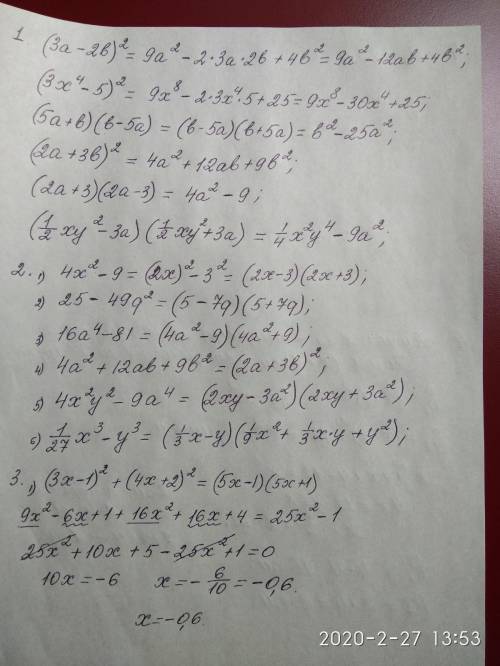 1 (3a-2b)² = 9a² - 2·3a·2b + 4b² = 9a² - 12ab + 4b²;
(3x⁴-5)² = 9x⁸ - 2·3x⁴·5 + 25 = 9x⁸ - 30x⁴ + 25;
(5a+b)(b-5a) = (b-5a)(b+5a) = b² - 25a²;
(2a+3b)² = 4a² + 12ab + 9b²;
(2a+3)(2a-3) = 4a² - 9;
(1/2 xy² - 3a)(1/2 xy² + 3a) = 1/4 x²y⁴ - 9a²;
2. 1) 4x² - 9 = (2x)² - 3² = (2x-3)(2x+3);
2) 25 - 49q² = (5-7q)(5+7q);
3) 16a⁴ - 81 = (4a²-9)(4a²+9);
4) 4a² + 12ab + 9b² = (2a+3b)²;
5) 4x²y² - 9a⁴ = (2xy-3a²)(2xy+3a²);
6) 1/27 x³ - y³ = (1/3 x - y)(1/9 x² + 1/3 x·y + y²);
3. 1) (3x-1)² + (4x+2)² = (5x-1)(5x+1)
9x² - 6x + 1 + 16x² + 16x + 4 = 25x² - 1
25x² + 10x + 5 - 25x² + 1 = 0
10x = -6 x = -6/10 = -0,6.
x = -0,6.
2020-2-27 13:53